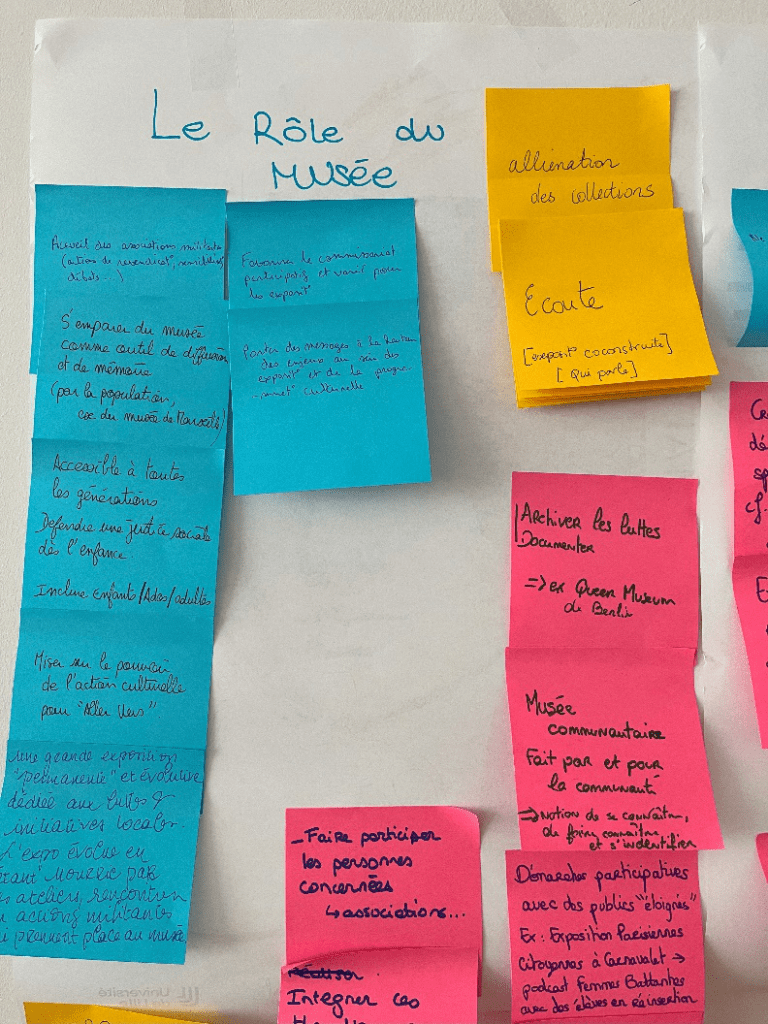 Le Rôle du
Musée
Accueil des associations militantes
(actions de revendicat°, sensibilisat°,
débats...)
S'emparer du musée
comme outil de diffusion
et de mémoire
(par la population,
ex. du musée de Marseille)
Accessible à toutes
les générations
Défendre une justice sociale
dès l'enfance
Inclure enfants/Ados/adultes
Miser sur le pouvoir
de l'action culturelle
pour "Aller Vers"
Une grande exposition
"permanente" et évolutive
dédiée aux luttes &
initiatives locales.
L'expo évolue en
étant nourrie par
ateliers, rencontres
actions militantes
qui prennent place au musée
Favoriser le commissariat
participatif et varié pour
les exposit°
Porter des messages à la hauteur
des enjeux au sein des
exposit° et de la progra-
-mmat° culturelle
alliénation
des collections
Ecoute
[exposit° coconstruite]
[Qui parle]
Archiver les luttes
Documenter
=> ex Queer Museum
de Berlin
Musée
communautaire
Fait par et pour
la communauté
=> Notion de se connaître,
de faire connaître
et s'indentifier
Démarches participatives
avec des publics "éloignés"
Ex : Exposition Parisiennes
Citoyennes à Carnavalet →
podcast Femmes Battantes
avec des élèves en réinsertion
_Faire participer
les personnes
concernées
↳ associations...
réaliser
Integrer ces
cf.